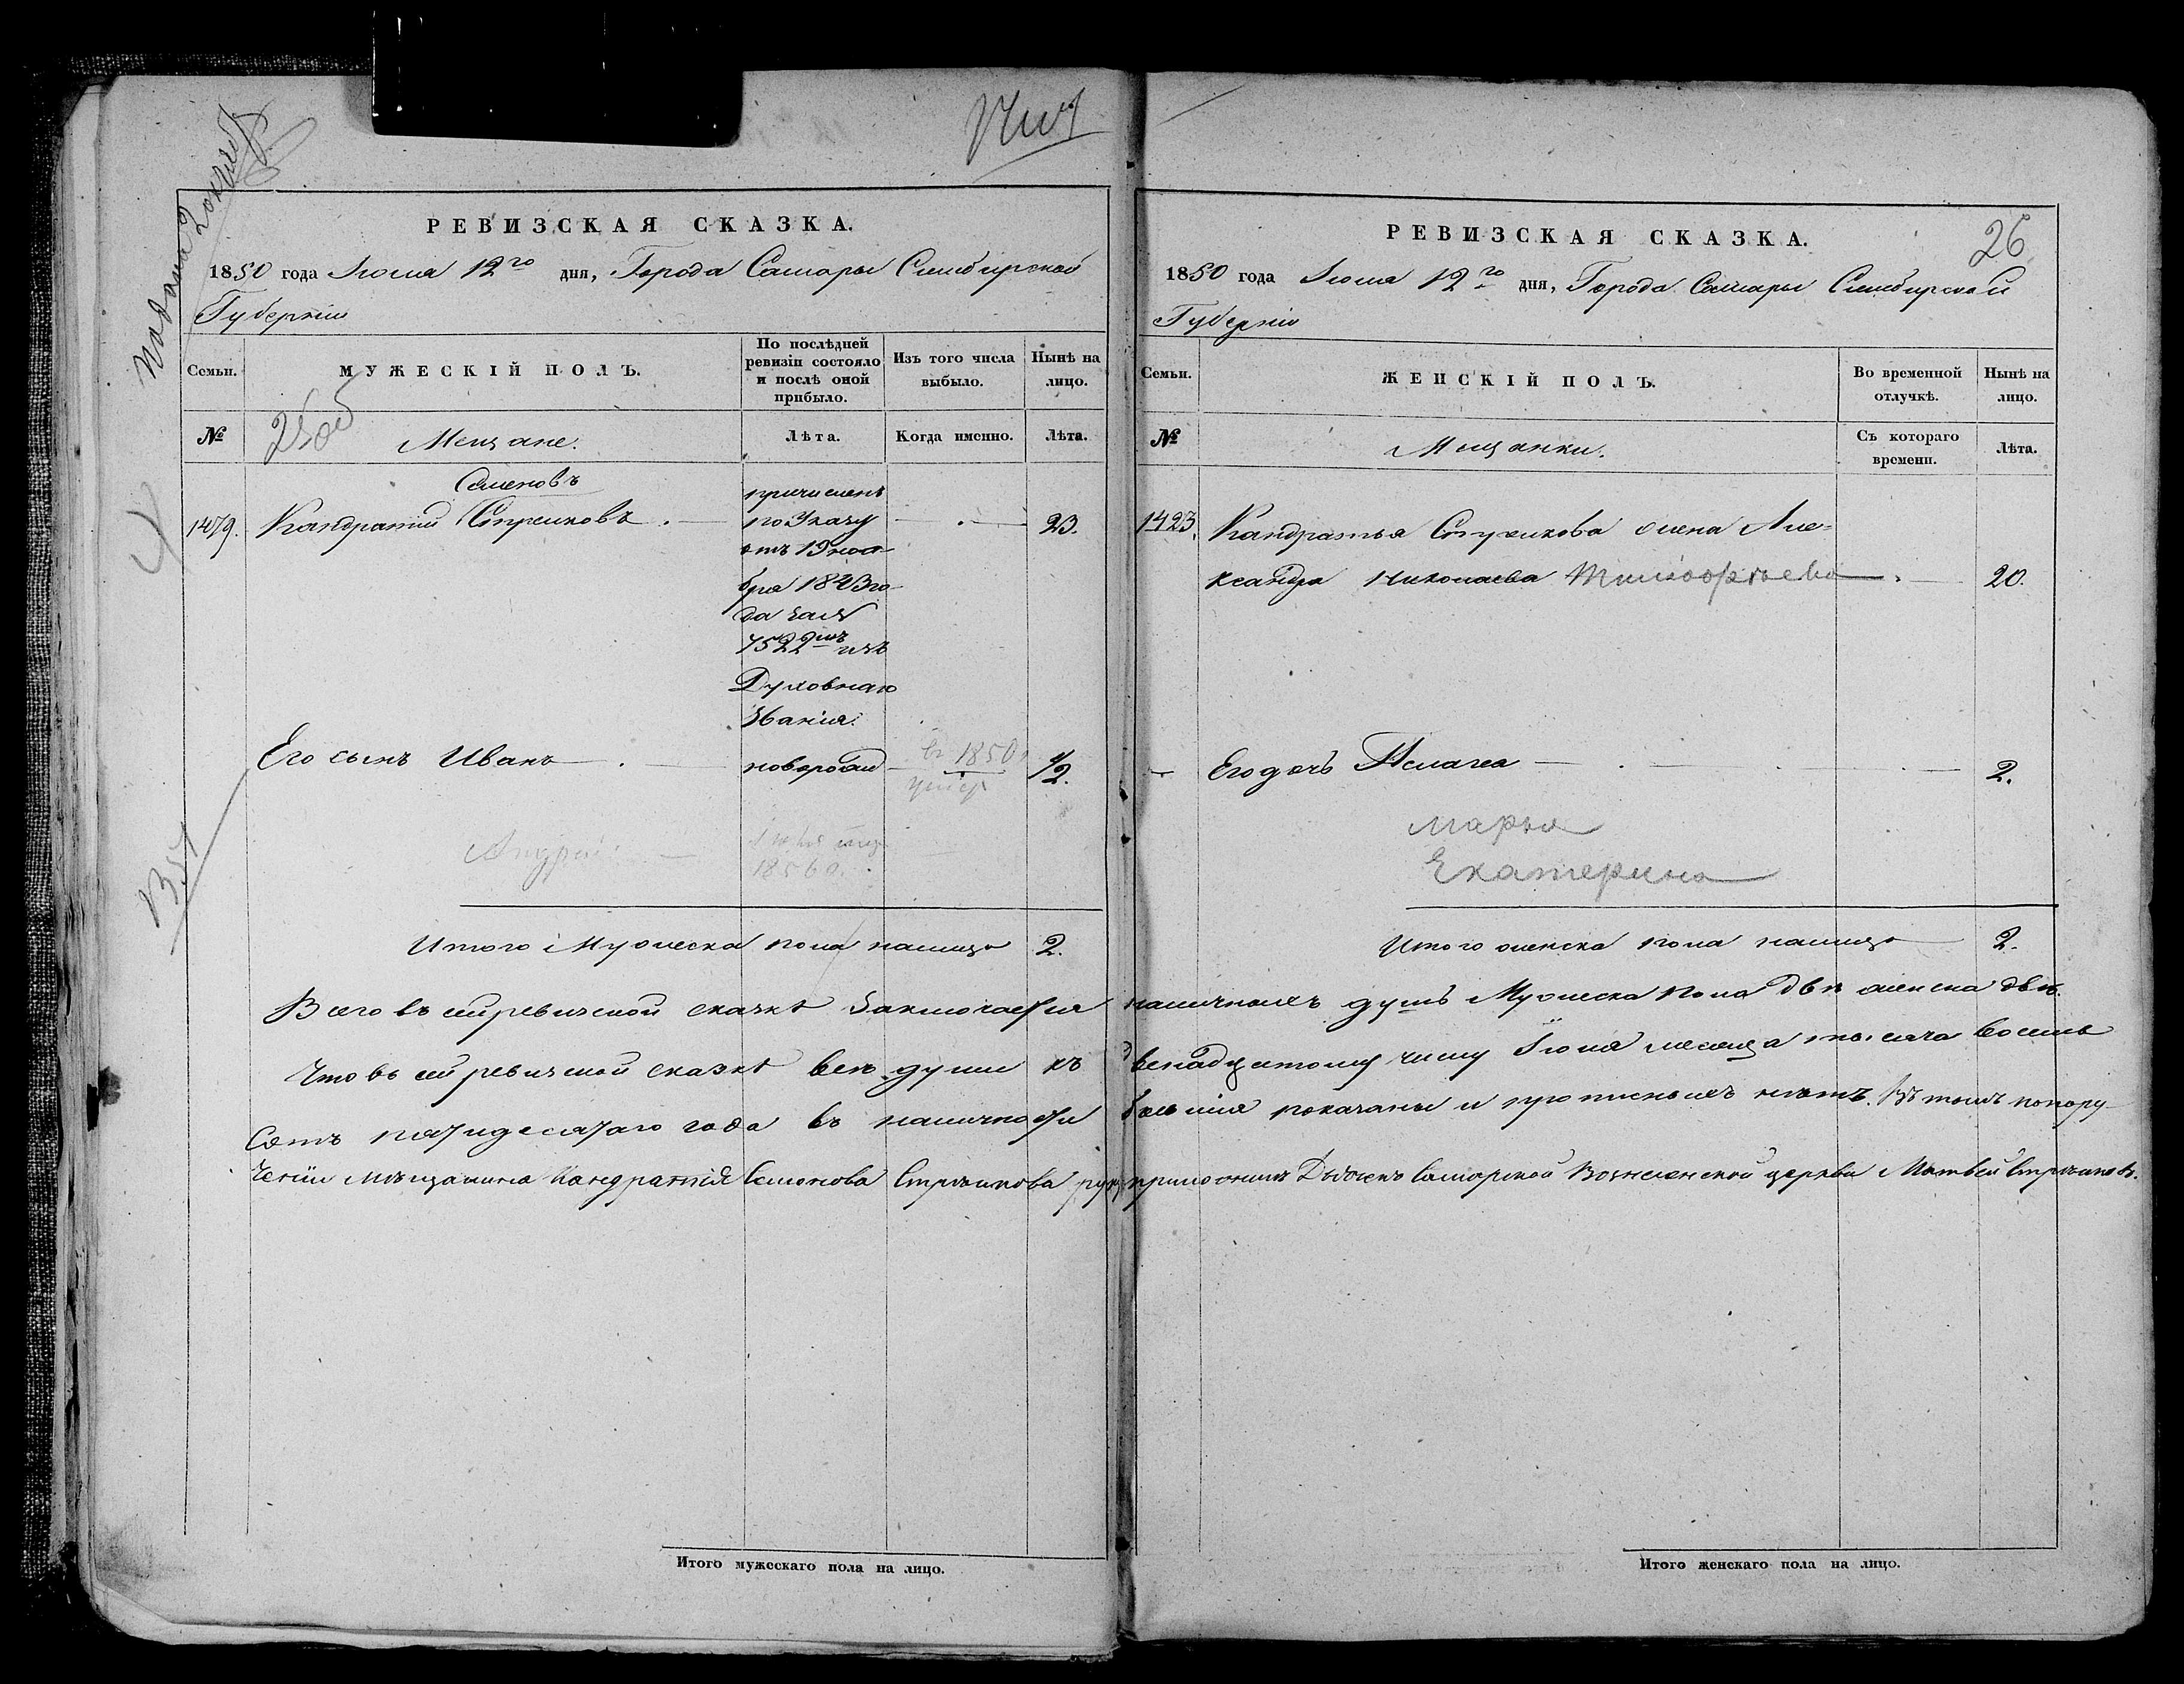 26
РЕВИЗСКАЯ СКАЗКА.
1850 года Іюля 12го дня, Города Самары Симбирской
Губерніи
Семьи.
МУЖЕСКІЙ ПОЛЪ.
По послѣдней ревизіи состояло и послѣ оной прибыло.
Изъ того числа выбыло.
Нынѣ на лицо.
№
Мещане.
Лѣта.
Когда именно.
Лѣта.
Семеновъ
1479. Кандратій Стрелковъ 23.
причисленъ
по Указу
отъ 19 ноя
бря 1843 го
да за №
7522мъ изъ
Духовнаго
Званія.
Его сынъ Иванъ новорожд въ 1850 умеръ 1/2.
Андрей
1856
Итого Мужеска пола налицо 2.
РЕВИЗСКАЯ СКАЗКА.
1850 года Іюля 12го дня, Города Самары Симбирской
Губерніи
Семьи.
ЖЕНСКІЙ ПОЛЪ.
Во временной отлучкѣ.
Нынѣ на лицо.
№
Мещанки.
Съ котораго времени.
Лѣта.
1423. Кандратья Стрелкова жена Але=
ксандра Николаева 20.
Его дочь Пелагея 2.
Марья
Екатерина
Итого женска пола налицо 2.
Всего въ сей ревизской сказкѣ Заключается наличныхъ душъ Мужеска пола двѣ женска двѣ.
Что въ сей ревизской сказкѣ все души къ двенадцатому числу Іюля месяца тысяча восемь
Сотъ пятидесятаго года въ наличности бывшія показаны и прописныхъ нѣтъ. Въ томъ по пору-
ченію мѣщанина Кандратія Семенова Стрѣлкова руку приложилъ Дьячекъ Самарской Вознесенской церкви Матвей Стрѣлковъ.
Итого мужескаго пола на лицо.
Итого женскаго пола на лицо.